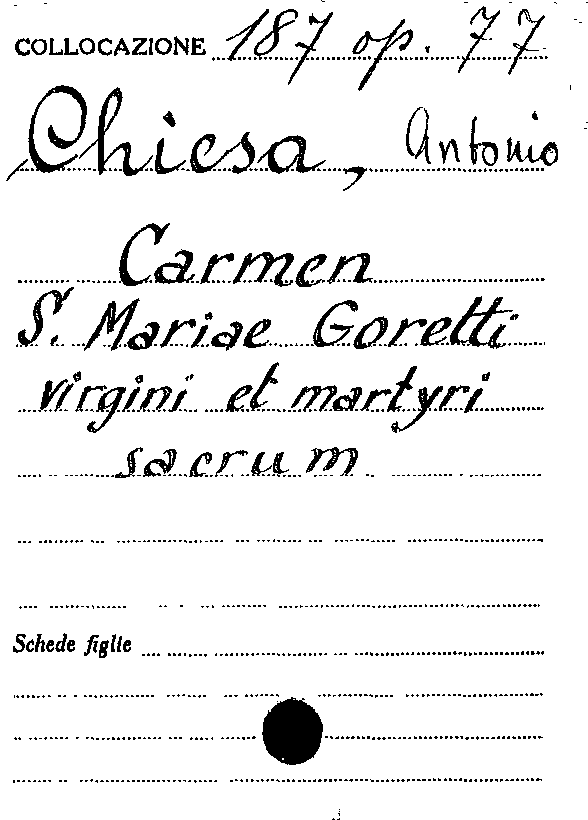 COLLOCAZIONE 187 op. 77
Chiesa, Antonio
Carmen
S. Mariae Goretti
virgini et martyri
sacrum
Schede figlie